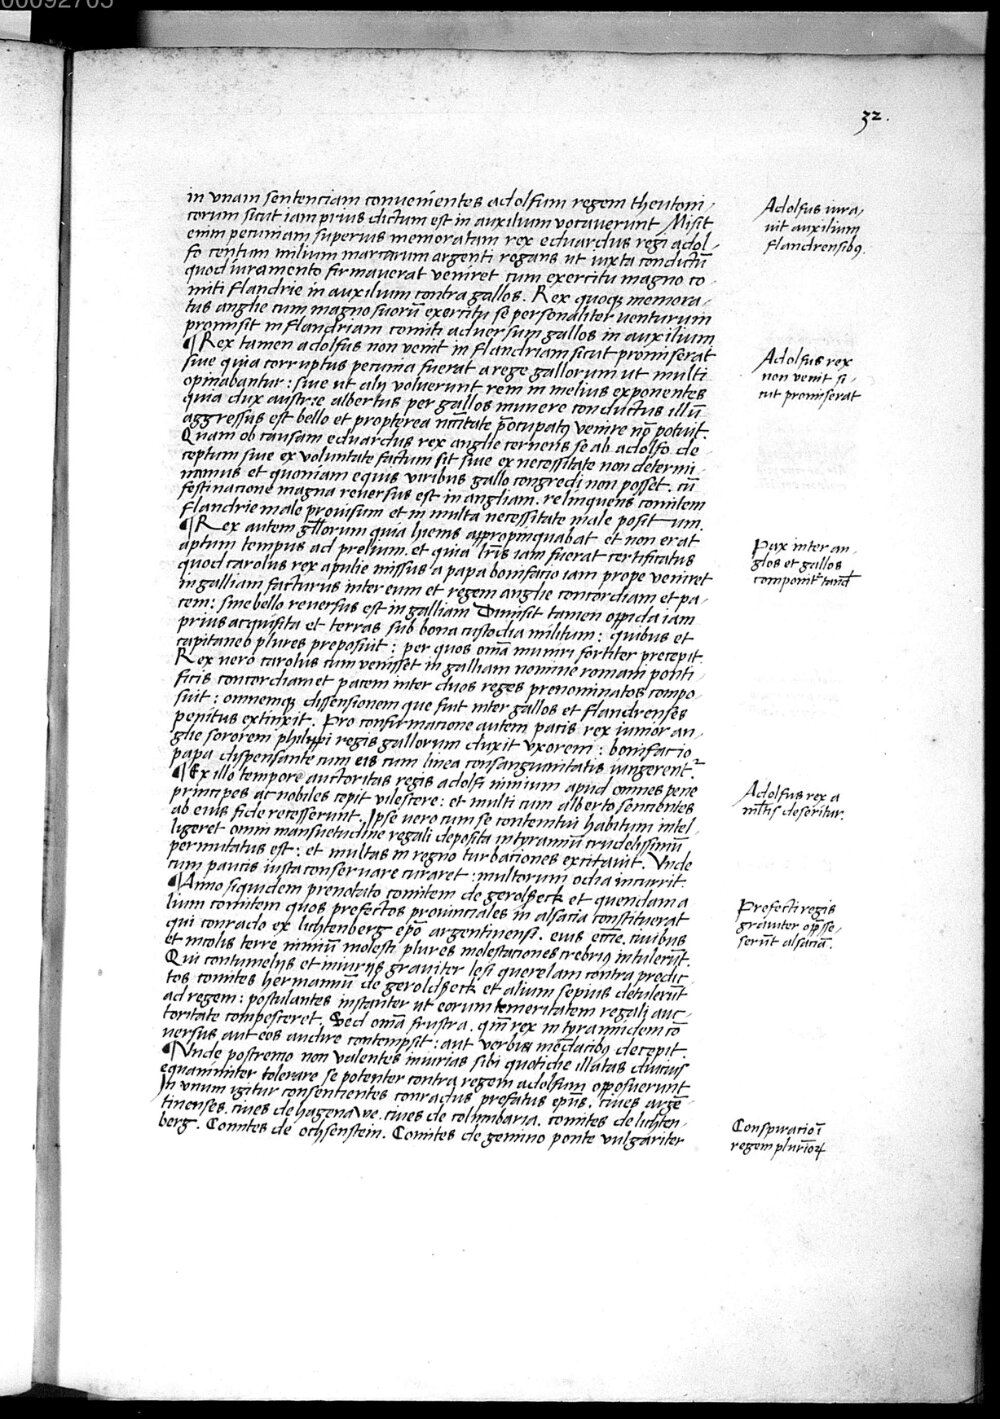 32.
in vnam sentenciam convenientes adolfum regem theutoni-
corum sicut iam prius dictum est in auxilium vocauerunt Misit
enim pecuniam superius memoratam rex eduardus regi adol-
fo centum milium marcarum argenti rogans ut iuxta condictū
quod iuramento firmauerat veniret cum exercitu magno co-
miti flandrie in auxilium contra gallos. Rex quoq; memora-
tus anglie cum magno suorū exercitu se personaliter venturum
promisit in flandriam comiti adversum gallos in auxilium
¶ Rex tamen adolfus non venit in flandriam sicut promiserat
siue quia corruptus pecunia fuerat a rege gallorum ut multi
opinabantur : siue ut alij voluerunt rem in melius exponentes
quia dux austrie albertus per gallos munere conductus illū
aggressus est bello et propterea nccitate p̄ocupatꝯ venire nō potuit.
Quam ob causam eduardus rex anglie cernens se ab adolfo de-
ceptum siue ex voluntate factum sit siue ex necessitate non determi-
namus et quoniam equis viribus gallo congredi non posset. cū
festinacione magna reuersus est in angliam. relinquens comitem
flandrie male prouisum et in multa necessitate male positum.
¶ Rex autem gllorum quia hiems appropinquabat et non erat
aptum tempus ad prelium. et quia lr̄is iam fuerat certificatus
quod carolus rex apulie missus a papa bonifacio iam prope veniret
in galliam facturus inter eum et regem anglie concordiam et pa-
cem: sine bello reuersus est in galliam Dimisit tamen oppida iam
prius acquisita et terras sub bona custodia militum : quibus et
capitaneos plures preposuit : per quos om̄a muniri fortiter precepit.
Rex vero carolus cum venisset in galliam nomine romani ponti-
ficis concordiam et pacem inter duos reges prenominatos compo-
suit : omnemq; dissensionem que fuit inter gallos et flandrenses
penitus extinxit. Pro confirmacione autem pacis rex iunior an-
glie sororem philippi regis gallorum duxit vxorem : bonifacio
papa dispensante cum eis cum linea consanguinitatis iungerent᷑
¶ Ex illo tempore auctoritas regis adolfi nimium apud omnes pene
principes ac nobiles cepit vilescere : et multi cum alberto sencientes
ab eius fide recesserunt. Ipse vero cum se contemtui habitum intel-
ligeret omni mansuetudine regali deposita in tyrannū crudelissimū
permutatus est : et multas in regno turbationes excitauit. Vnde
cum paucis iusta conseruare curaret : multorum odia incurrit.
¶ Anno siquidem prenotato comitem de geroltzeck et quendam a-
lium comitem quos prefectos prouinciales in alsacia constituerat
qui conrado ex lichtenberg ep̄o argentinensi. eius eccīe. ciuibus
et incolis terre nimiū molesti plures molestaciones crebriꝯ intulerūt.
Qui contumelijs et iniurijs grauiter lesi querelam contra predic-
tos comites hermannū de geroldseck et alium sepius detulerūt
ad regem : postulantes instanter ut eorum temeritatem regali auc-
toritate compesceret. Sed om̄a frustra. qm̄ rex in tyrannidem cō-
versus aut eos audire contempsit : aut verbis mēdacibꝯ decepit.
¶ Vnde postremo non valentes iniurias sibi quotidie illatas diucius
equanimiter tolerare se potenter contra regem adolfum opposuerunt
In vnum igitur consencientes conradus prefatus ep̄us. ciues argē-
tinenses. ciues de hagenawe. ciues de columbaria. comites de lichten-
berg. Comites de ochsenstein. Comites de gemino ponte vulgariter
Adolfus iura-
uit auxilium
flandrensibꝯ.
Adolfus rex
non venit si-
cut promiserat
Pax inter an-
glos et gallos
componit᷑ tand̄
Adolfus rex a
mltīs deseritur.
Prefecti regis
grauiter opp̄sse-
serūt alsaciā.
Conspiratio ī
regem pluriōꝝ